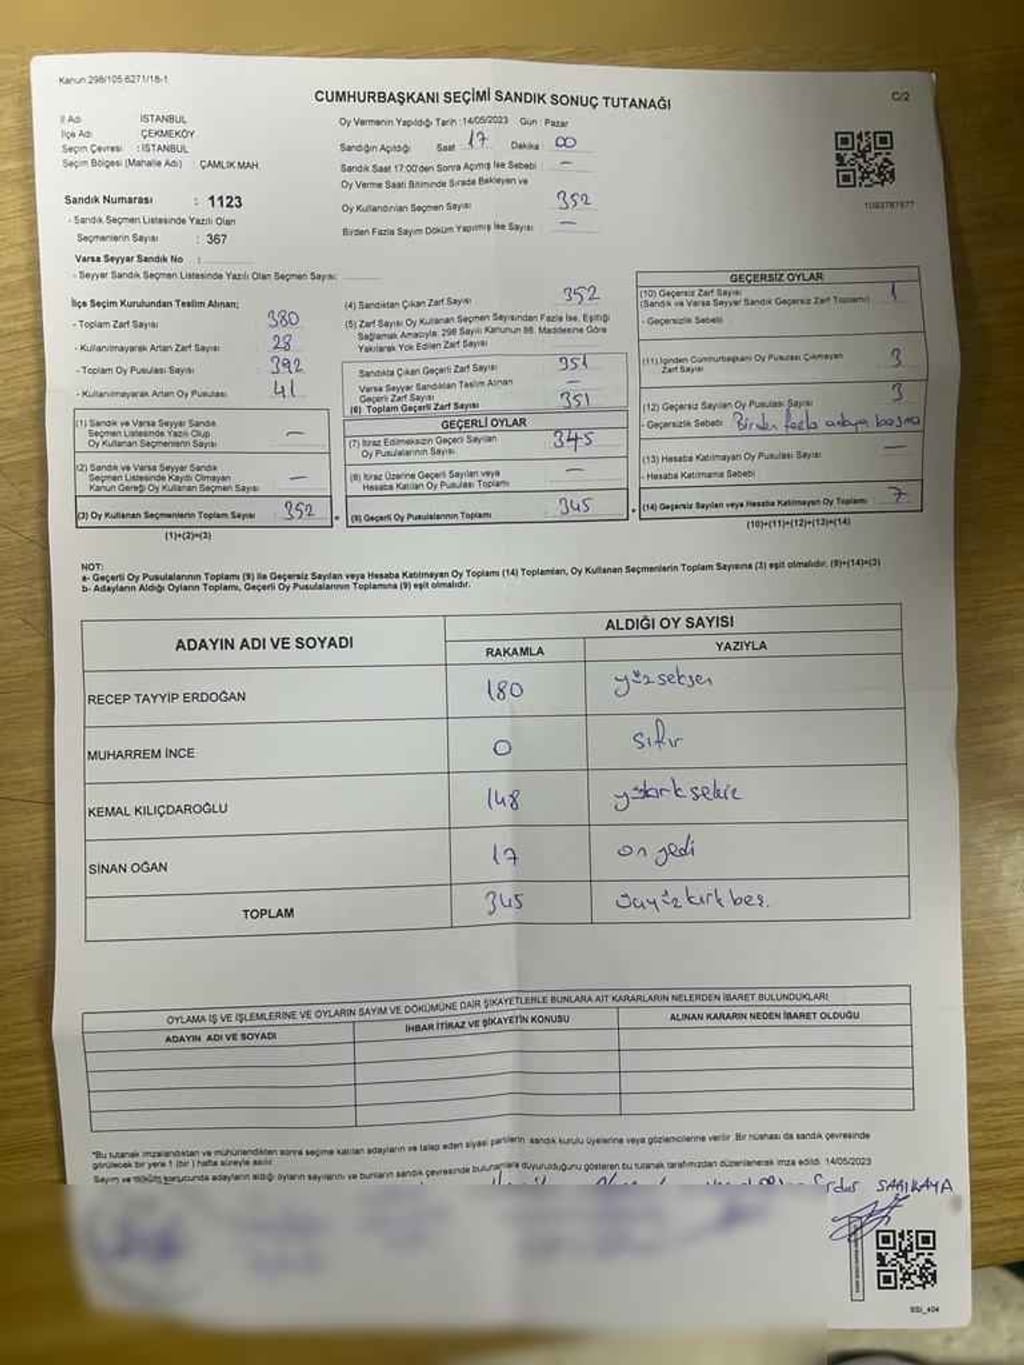 Kanun 298/105 6271/18-1
CUMHURBAŞKANI SEÇİMİ SANDIK SONUÇ TUTANAĞI
C/2
İl Adı İSTANBUL
İlçe Adı ÇEKMEKÖY
Seçim Çevresi : İSTANBUL
Seçim Bölgesi (Mahalle Adı) : ÇAMLIK MAH.
Sandık Numarası : 1123
- Sandık Seçmen Listesinde Yazılı Olan
Seçmenlerin Sayısı : 367
Varsa Seyyar Sandık No :
- Seyyar Sandık Seçmen Listesinde Yazılı Olan Seçmen Sayısı:
Oy Vermenin Yapıldığı Tarih : 14/05/2023 Gün : Pazar
Sandığın Açıldığı Saat 17 Dakika : 00
Sandık Saat 17:00'den Sonra Açmış İse Sebebi : —
Oy Verme Saati Bitiminde Sırada Bekleyen ve
Oy Kullandırılan Seçmen Sayısı 352
Birden Fazla Sayım Döküm Yapılmış İse Sayısı —
İlçe Seçim Kurulundan Teslim Alınan;
- Toplam Zarf Sayısı 380
- Kullanılmayarak Artan Zarf Sayısı 28
- Toplam Oy Pusulası Sayısı 392
- Kullanılmayarak Artan Oy Pusulası 41
(1) Sandık ve Varsa Seyyar Sandık
Seçmen Listesinde Yazılı Olup
Oy Kullanan Seçmenlerin Sayısı —
(2) Sandık ve Varsa Seyyar Sandık
Seçmen Listesinde Kaydı Olmayan
Kanun Gereği Oy Kullanan Seçmen Sayısı —
(3) Oy Kullanan Seçmenlerin Toplam Sayısı 352
(1)+(2)=(3)
(4) Sandıktan Çıkan Zarf Sayısı 352
(5) Zarf Sayısı Oy Kullanan Seçmen Sayısından Fazla İse, Eşitliği
Sağlamak Amacıyla, 298 Sayılı Kanunun 98. Maddesine Göre
Yakılarak Yok Edilen Zarf Sayısı
Sandıkta Çıkan Geçerli Zarf Sayısı 351
Varsa Seyyar Sandıktan Teslim Alınan
Geçerli Zarf Sayısı —
(6) Toplam Geçerli Zarf Sayısı 351
GEÇERLİ OYLAR
(7) İtiraz Edilmeksizin Geçerli Sayılan
Oy Pusulalarının Sayısı 345
(8) İtiraz Üzerine Geçerli Sayılan veya
Hesaba Katılan Oy Pusulası Toplamı —
(9) Geçerli Oy Pusulalarının Toplamı 345
GEÇERSİZ OYLAR
(10) Geçersiz Zarf Sayısı 1
(Sandık ve Varsa Seyyar Sandık Geçersiz Zarf Toplamı)
- Geçersizlik Sebebi
(11) İçinden Cumhurbaşkanı Oy Pusulası Çıkmayan
Zarf Sayısı 3
(12) Geçersiz Sayılan Oy Pusulası Sayısı 3
- Geçersizlik Sebebi Birden fazla adaya basma
(13) Hesaba Katılmayan Oy Pusulası Sayısı —
- Hesaba Katılmama Sebebi
(14) Geçersiz Sayılan veya Hesaba Katılmayan Oy Toplamı 7
(10)+(11)+(12)+(13)=(14)
NOT:
a- Geçerli Oy Pusulalarının Toplamı (9) ile Geçersiz Sayılan veya Hesaba Katılmayan Oy Toplamı (14) Toplamları, Oy Kullanan Seçmenlerin Toplam Sayısına (3) eşit olmalıdır. (9)+(14)=(3)
b- Adayların Aldığı Oyların Toplamı, Geçerli Oy Pusulalarının Toplamına (9) eşit olmalıdır.
ADAYIN ADI VE SOYADI
ALDIĞI OY SAYISI
RAKAMLA YAZIYLA
RECEP TAYYİP ERDOĞAN 180 yüzseksen
MUHARREM İNCE 0 sıfır
KEMAL KILIÇDAROĞLU 148 yüzkırksekiz
SİNAN OĞAN 17 on yedi
TOPLAM 345 üçyüzkırkbeş.
OYLAMA İŞ VE İŞLEMLERİNE VE OYLARIN SAYIM VE DÖKÜMÜNE DAİR ŞİKAYETLERLE BUNLARA AİT KARARLARIN NELERDEN İBARET BULUNDUKLARI
ADAYIN ADI VE SOYADI İHBAR İTİRAZ VE ŞİKAYETİN KONUSU ALINAN KARARIN NEDEN İBARET OLDUĞU
*Bu tutanak imzalandıktan ve mühürlendikten sonra seçime katılan adayların ve talep eden siyasi partilerin sandık kurulu üyelerine veya gözlemcilerine verilir. Bir nüshası da sandık çevresinde
görülecek bir yere 1 (bir) hafta süreyle asılır.
Sayım ve döküm sonucunda adayların aldığı oyların sayılarını ve bunların sandık çevresinde bulunanlara duyurulduğunu gösteren bu tutanak tarafımızdan düzenlenerek imza edildi. 14/05/2023
SARIKAYA
SSI_404